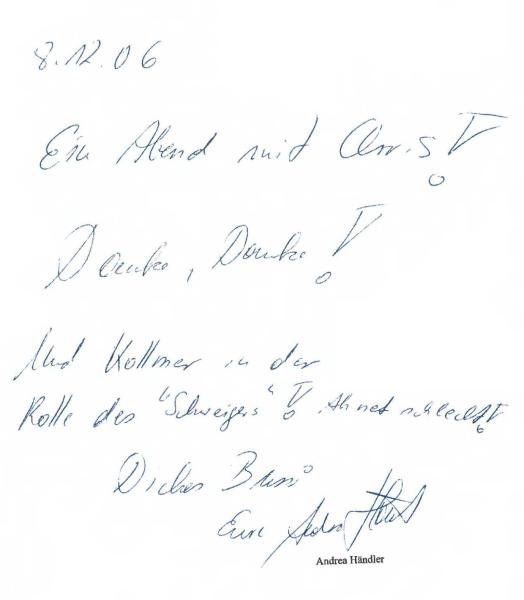 8.12.06
Ein Abend mit Chris!
Danke, Danke!
Und Kollmer in der
Rolle des "Schweigers"! Ah net schlecht!
Dickes Bussi
Eure Andrea Händler
Andrea Händler